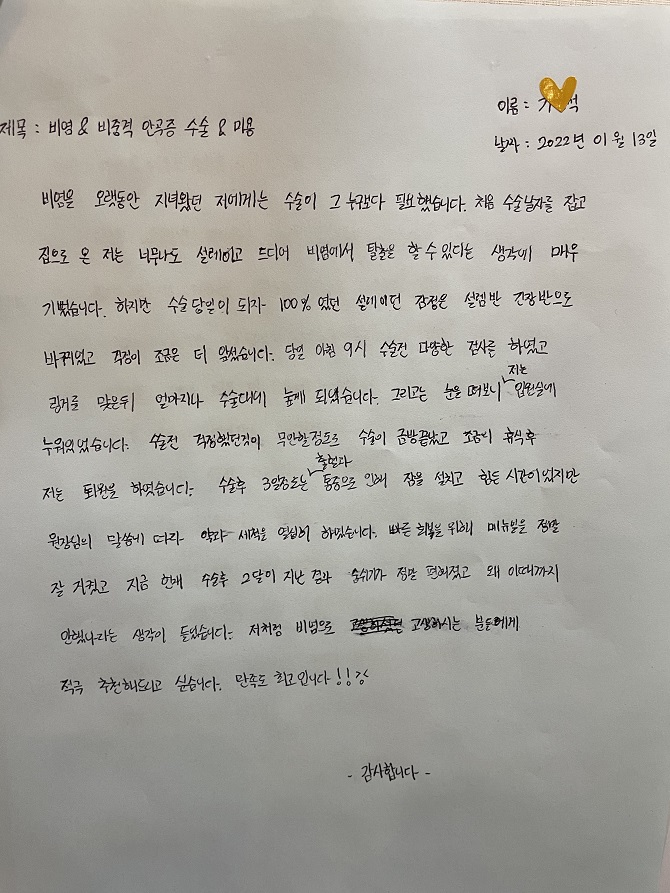 이름 : 기 석
제목 : 비염 & 비중격 만곡증 수술 & 미용
날짜 : 2022년 01월 13일
비염을 오랫동안 지녀왔던 저에게는 수술이 그 누구보다 필요했습니다. 처음 수술날짜를 잡고
집으로 온 저는 너무나도 설레이고 드디어 비염에서 탈출을 할 수 있다는 생각에 매우
기뻤습니다. 하지만 수술 당일이 되자 100% 였던 설레이던 감정은 설렘반 긴장반으로
바뀌었고 걱정이 조금은 더 앞섰습니다. 당일 아침 9시 수술전 다양한 검사를 하였고
링거를 맞은뒤 얼마지나 수술대에 눕게 되었습니다. 그리고는 눈을 떠보니 저는 입원실에
누워있었습니다. 수술전 걱정했던것이 무안할정도로 수술이 금방끝났고 조금의 휴식후
저는 퇴원을 하였습니다. 수술후 3일정도는 출혈과 통증으로 인해 잠을 설치고 힘든 시간이었지만
원장님의 말씀에 따라 약과 세척을 열심히 하였습니다. 빠른 회복을 위해 메뉴얼을 정말
잘 지켰고 지금 현재 수술후 2달이 지난 결과 숨쉬기가 정말 편해졌고 왜 이때까지
안했나라는 생각이 들었습니다. 저처럼 비염으로 고생하시는 분들에게
적극 추천해드리고 싶습니다. 만족도 최고입니다!!강
- 감사합니다 -